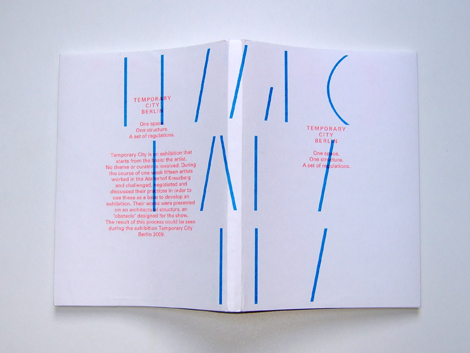 TEMPORARY
CITY
BERLIN
One space.
One structure.
A set of regulations.
Temporary City is an exhibition that
starts from the basic: the artist.
No theme or content is involved. During
the course of one week fifteen artists
worked in the Kreuzberg
and challenged, negotiated and
discussed their practices in order to
use these as a base to develop an
exhibition. Their works were presented
on an architectural structure, an
'obstacle' designed for the show.
The result of this process could be seen
during the exhibition Temporary City
Berlin 2009.
TEMPORARY
CITY
BERLIN
One space.
One structure.
A set of regulations.